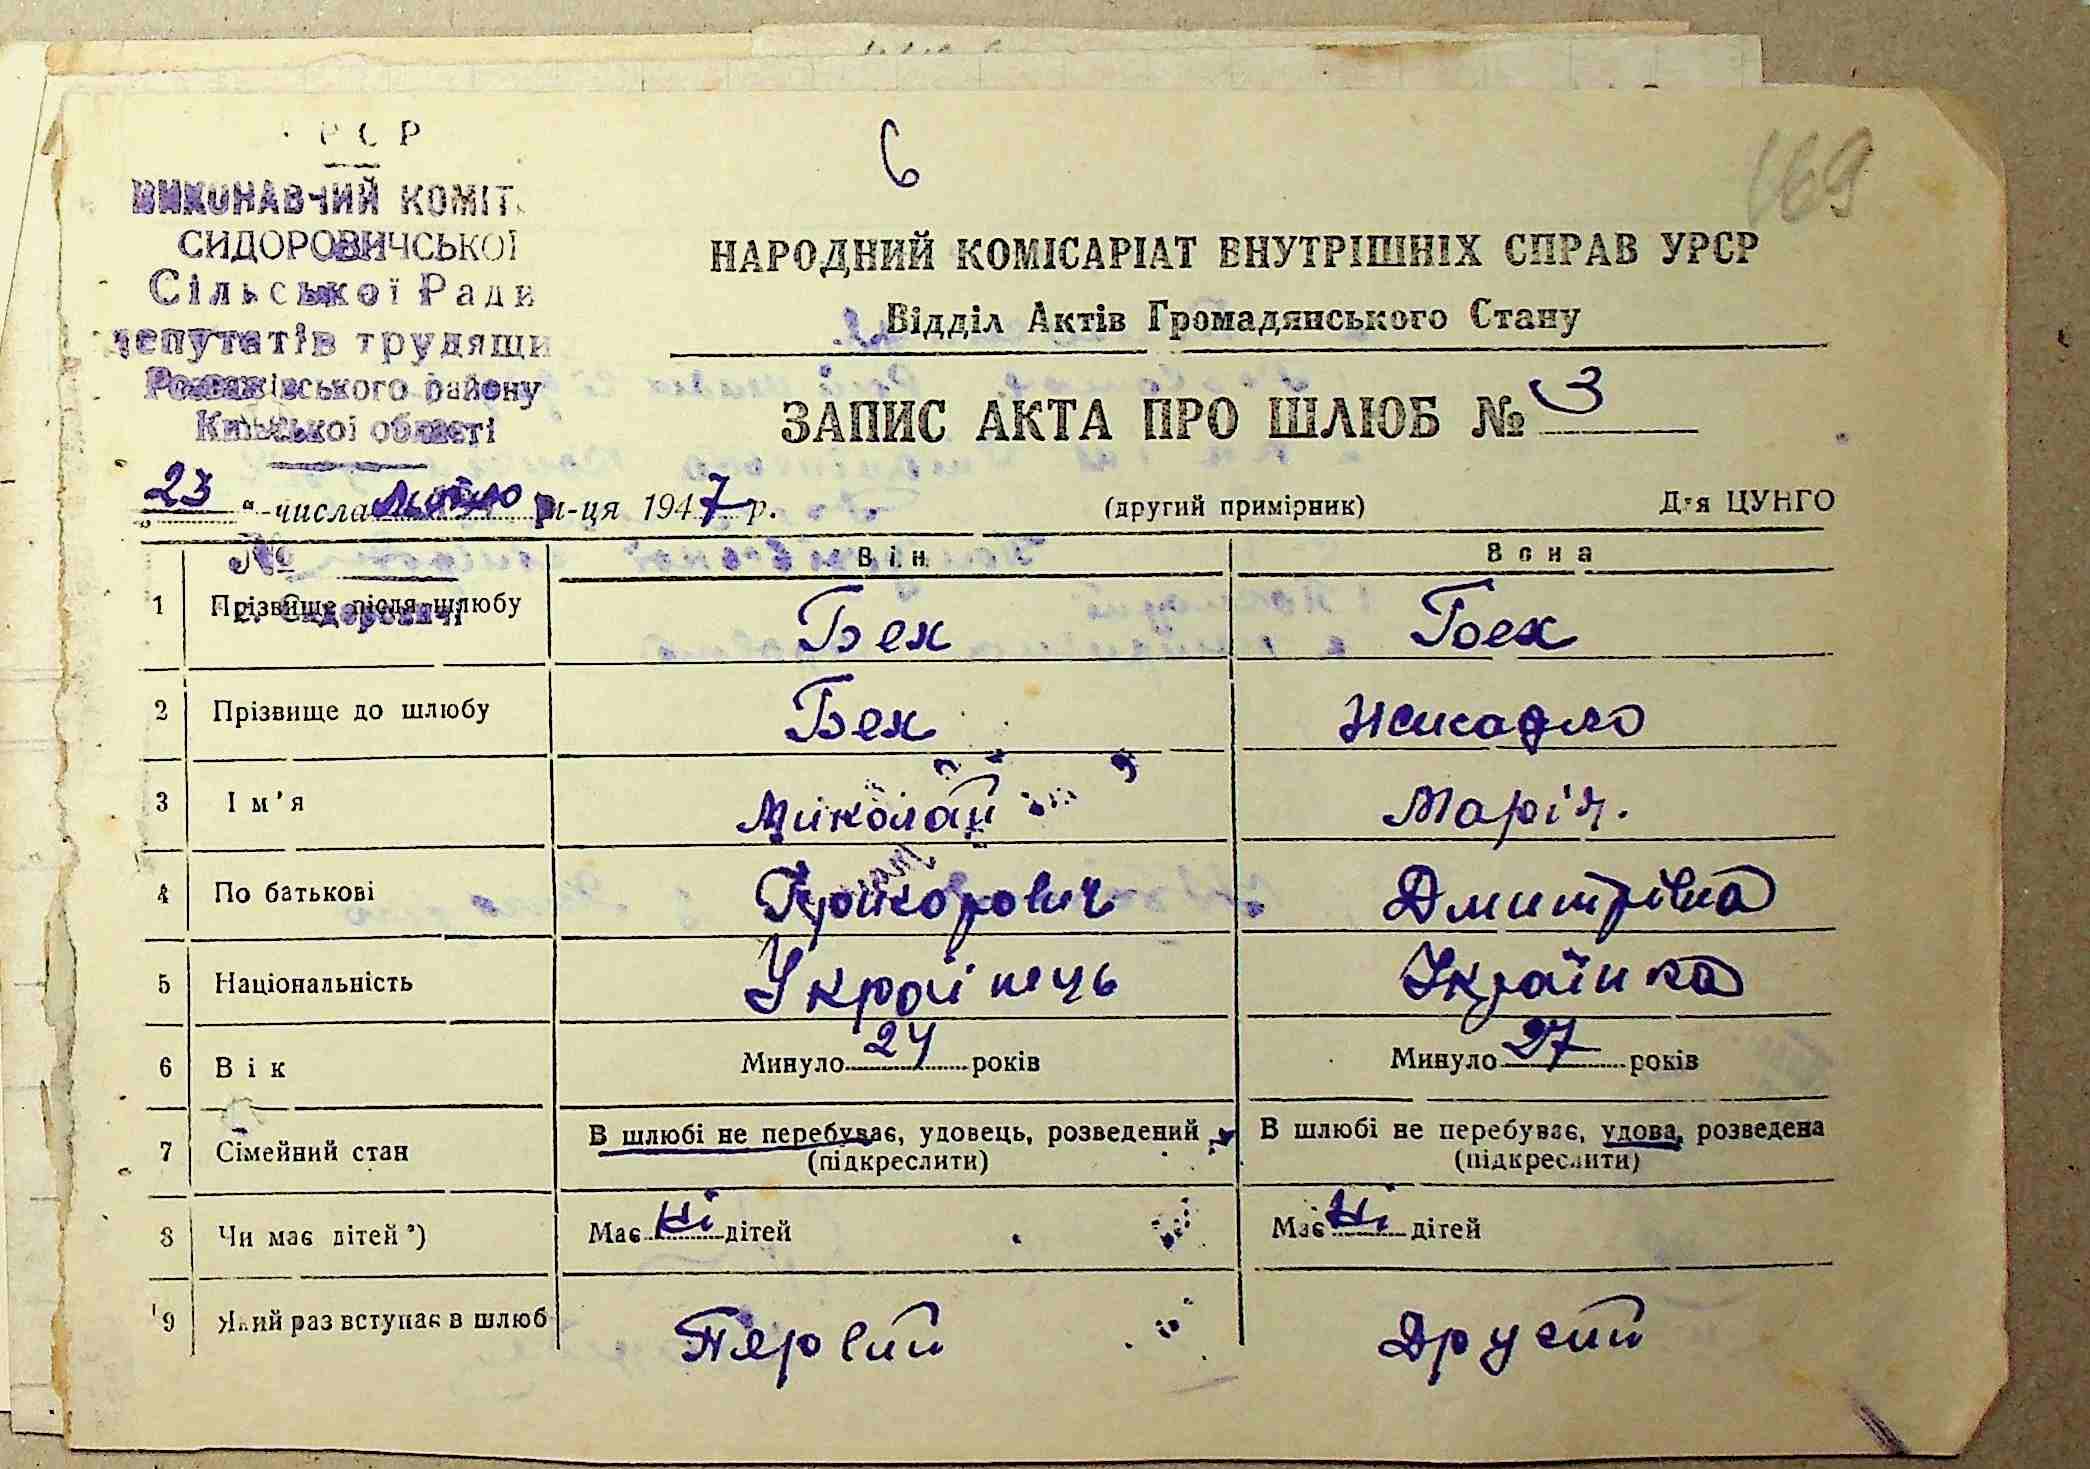 РСР
6
169
ВИКОНАВЧИЙ КОМІТ.
СИДОРОВИЧСЬКОЇ
Сільської Ради
депутатів трудящи
Розважівського району
Київської області
НАРОДНИЙ КОМІСАРІАТ ВНУТРІШНІХ СПРАВ УРСР
Відділ Актів Громадянського Стану
ЗАПИС АКТА ПРО ШЛЮБ № 3
„ 23 " числа лютого м-ця 1947 р.
(другий примірник)
Для ЦУНГО
№
с. Сидоровичі
Він
Вона
1 Прізвище після шлюбу Бех Бех
2 Прізвище до шлюбу Бех
3 Ім'я Миколай Марія.
4 По батькові Дмитрівна
5 Національність Украйінець Українка
6 Вік Минуло 24 років Минуло 27 років
7 Сімейний стан В шлюбі не перебуває, удовець, розведений В шлюбі не перебуває, удова, розведена
(підкреслити) (підкреслити)
8 Чи має дітей *) Має Ні дітей Має Ні дітей
9 Який раз вступає в шлюб Первий Другий